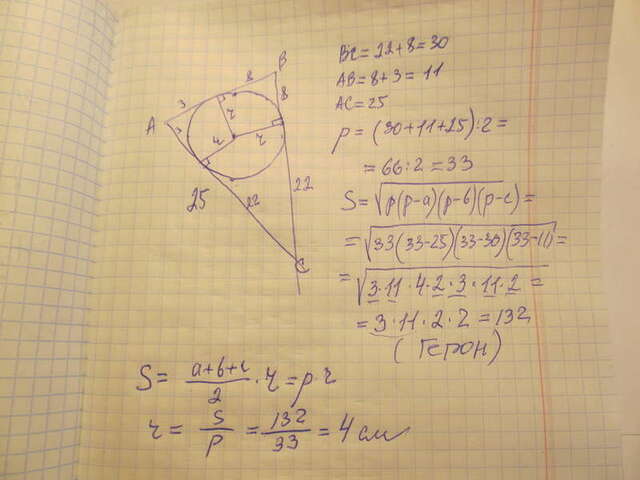 B
8
3
8
A
3
r
r
r
25
22
22
C
BC = 22+8 = 30
AB = 8+3 = 11
AC = 25
p = (30+11+25):2 =
= 66:2 = 33
S = √p(p-a)(p-b)(p-c) =
= √33(33-25)(33-30)(33-11) =
= √3·11·4·2·3·11·2 =
= 3·11·2·2 = 132
(Герон)
S = a+b+c/2 · r = p r
r = S/p = 132/33 = 4 см